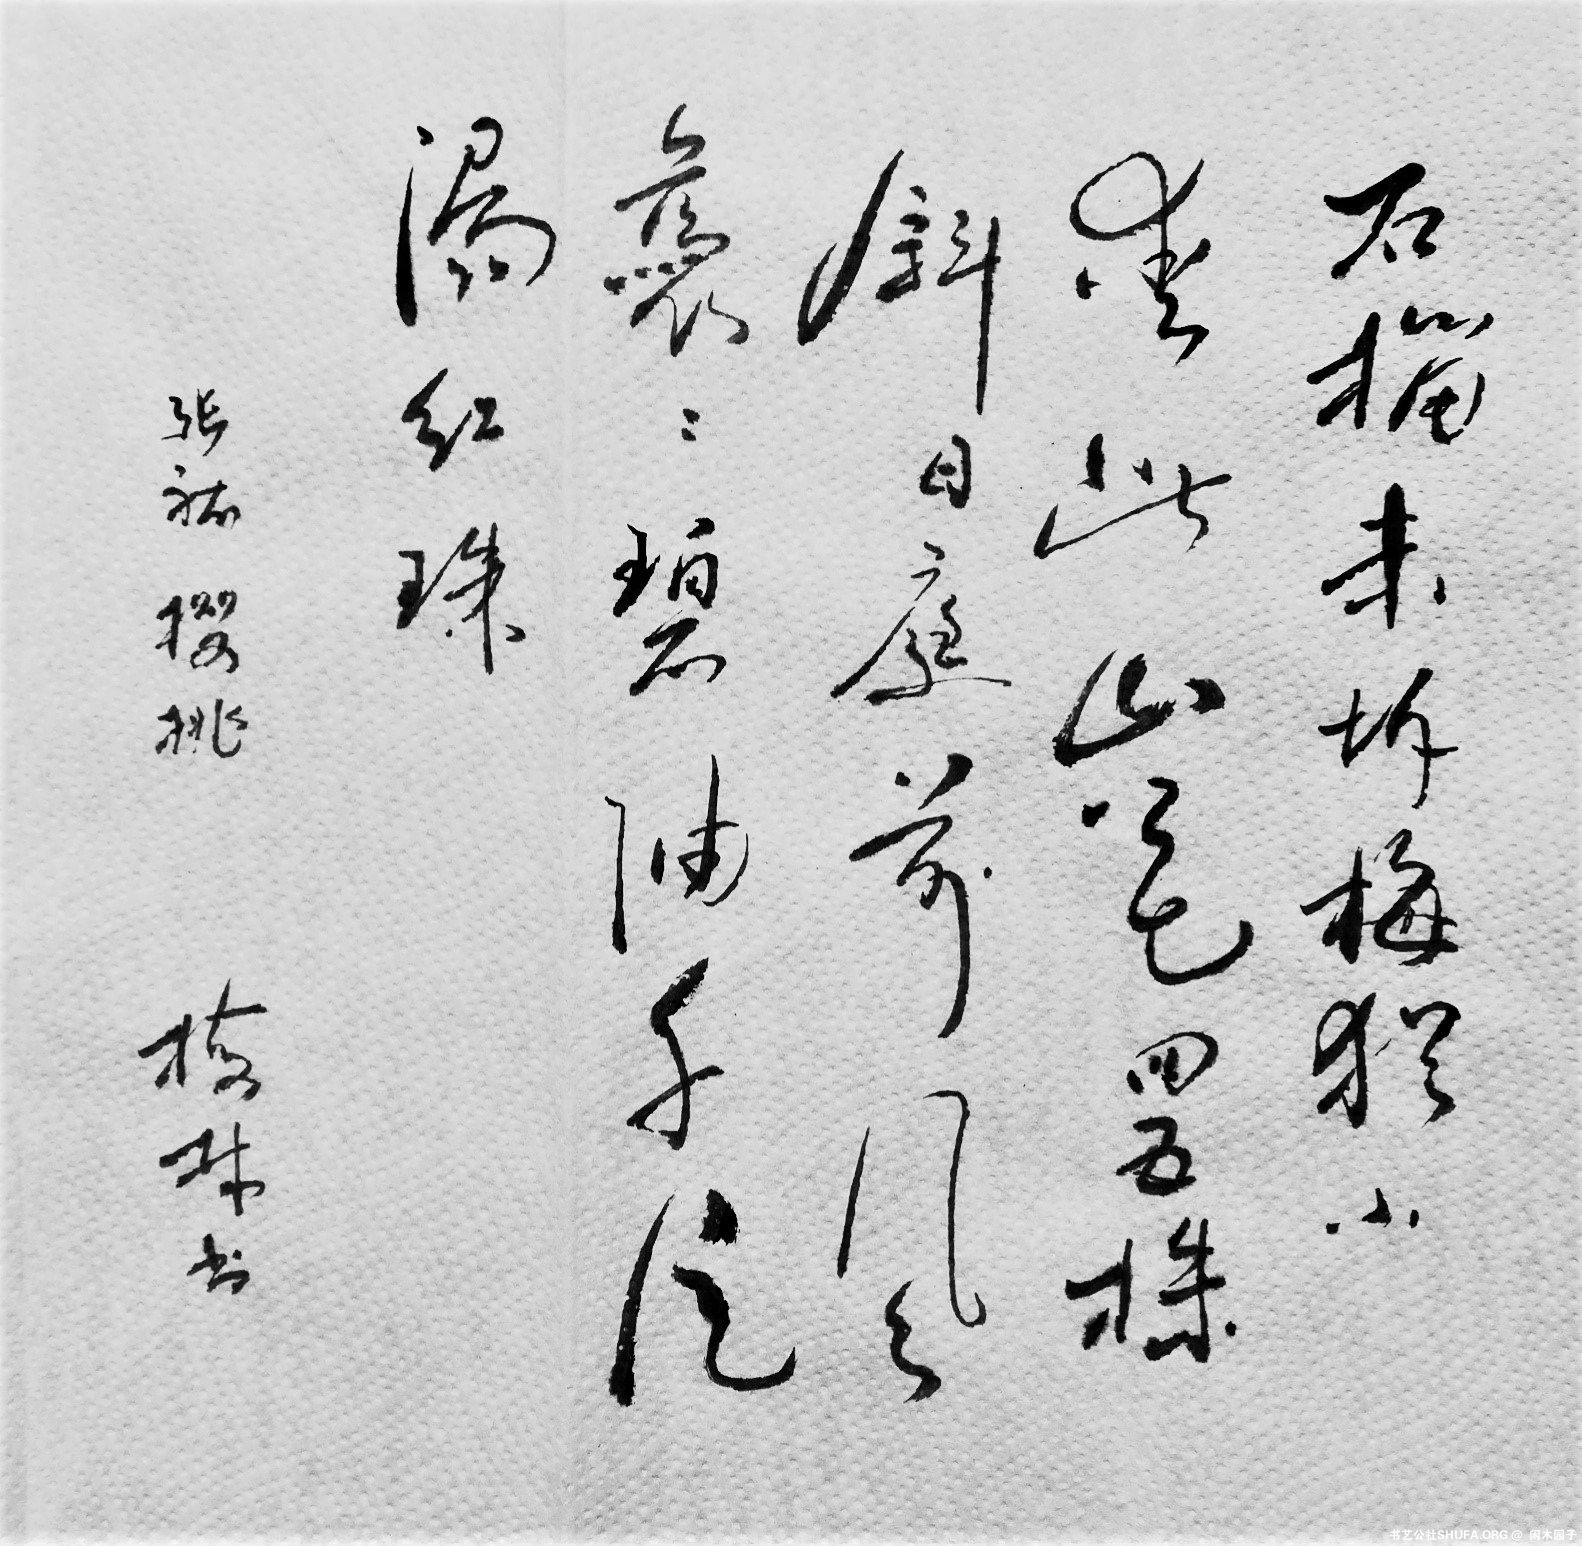 石榴未坼梅犹小
爱此山花四五株
斜日庭前风
裊〻碧油千片
漏红珠
张祜 樱桃 书
书艺公社SHUFA.ORG @ 闲木园子